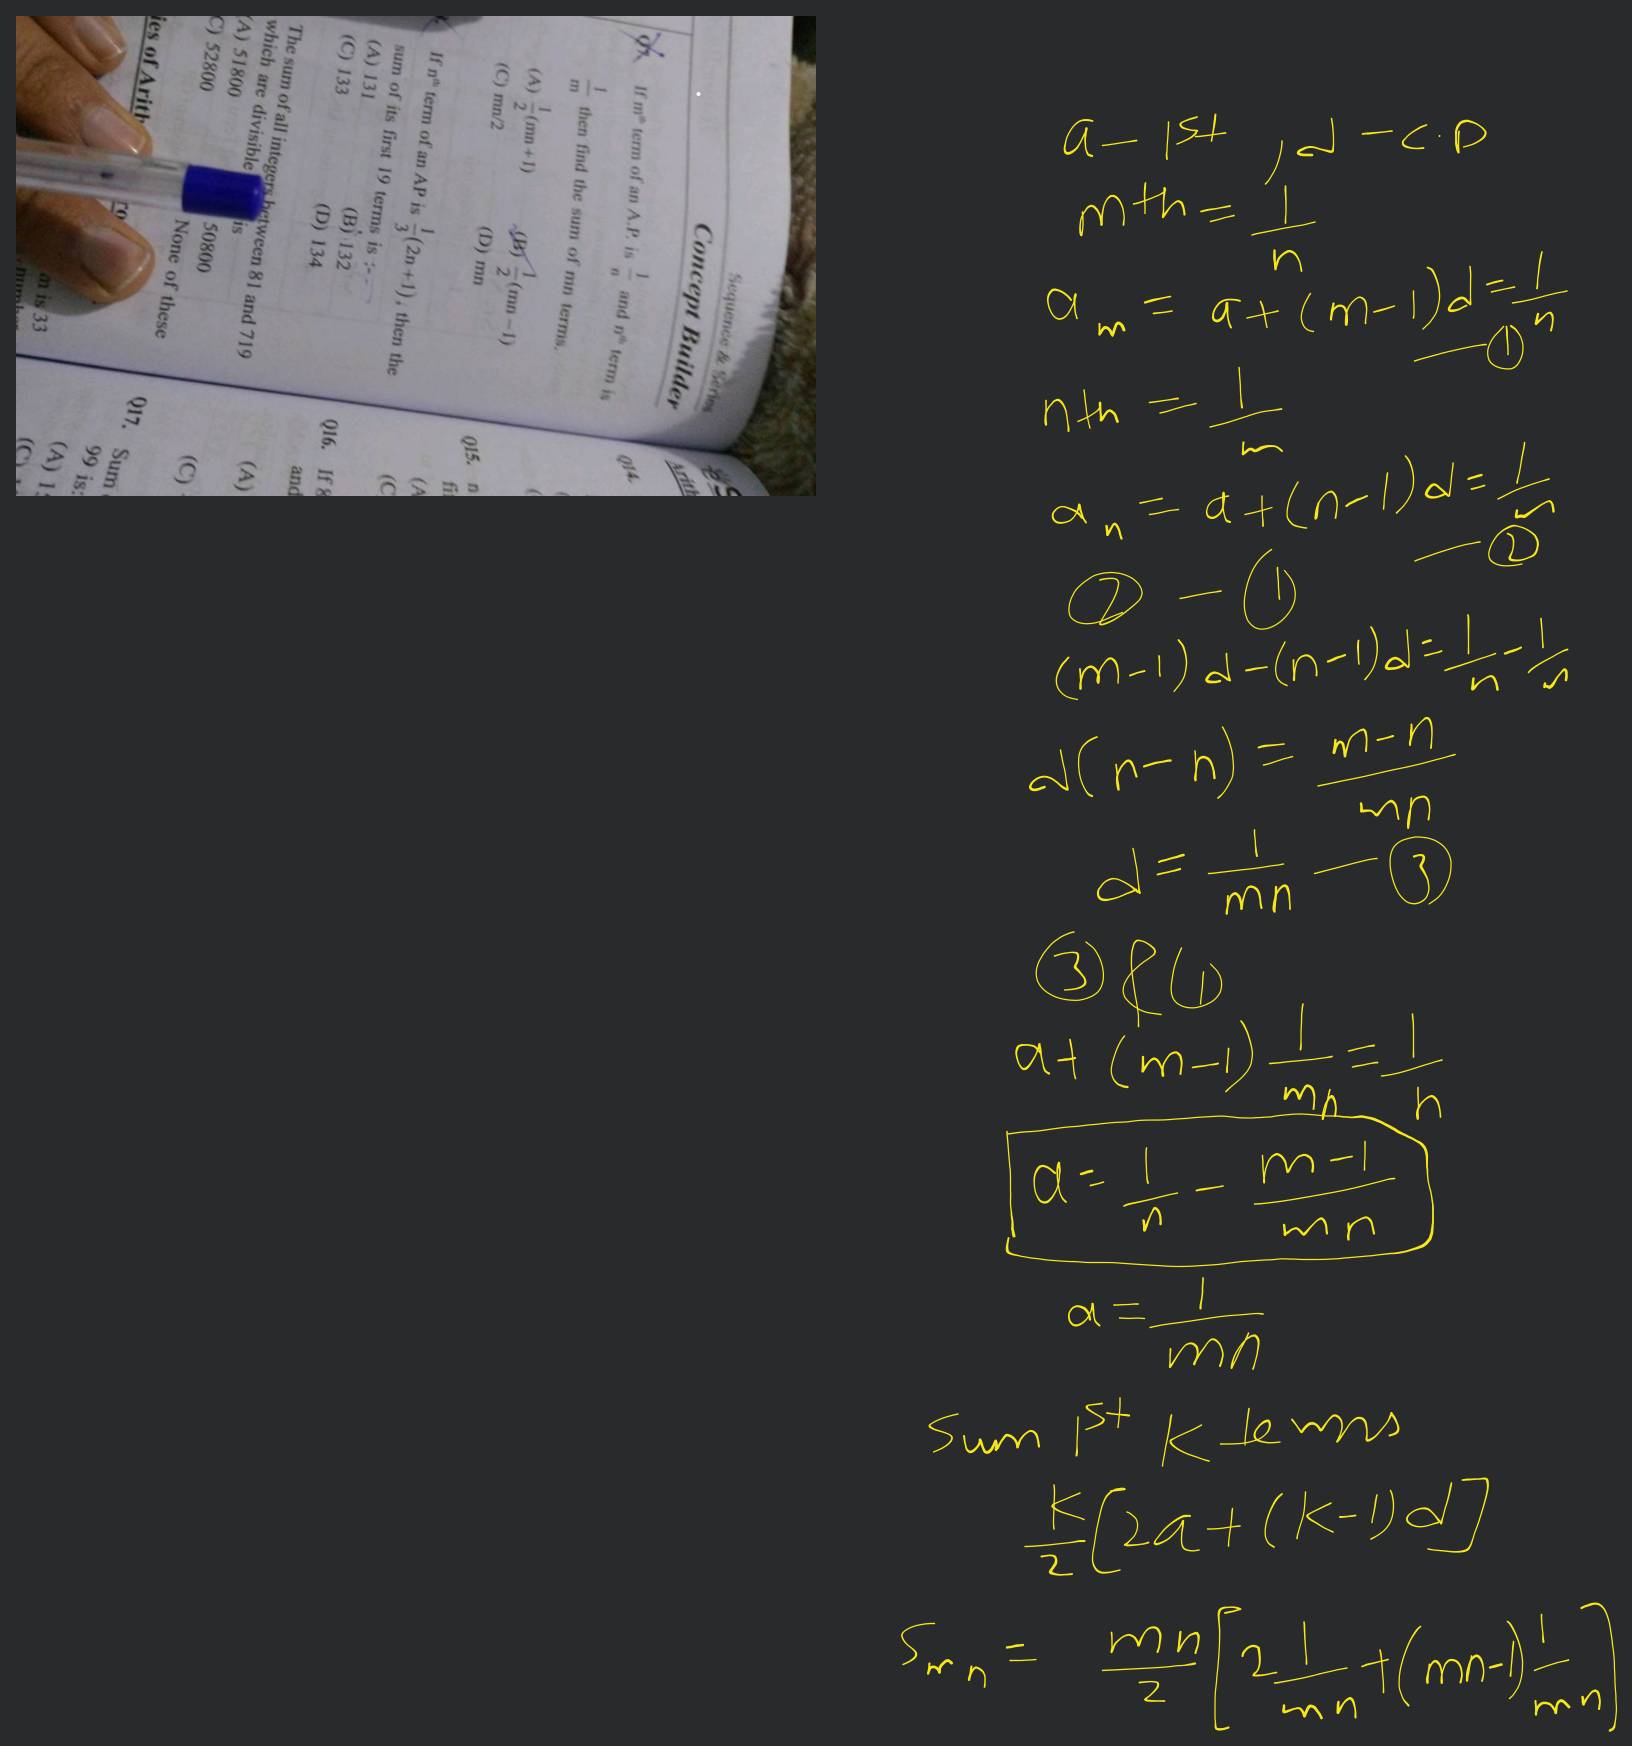 Sequence & Series
Concept Builder
If mth term of an A.P. is 1/n and nth term is
1/m then find the sum of mn terms.
(A) 1/2 (mn+1) (B) 1/2 (mn−1)
(C) mn/2 (D) mn
If nth term of an AP is 1/3 (2n+1), then the
sum of its first 19 terms is :-
(A) 131 (B) 132
(C) 133 (D) 134
The sum of all integers between 81 and 719
which are divisible is
(A) 51800 50800
C) 52800 None of these
ies of Arith
m is 33
Q14.
Q15. n
(A
(C
Q16. If 8
and
(A)
(C)
Q17. Sum
99 is:
(A) 1
(C)
a – 1st , d – C.D
mth = 1/n
a m = a + (m−1)d = 1/n
— ①
nth = 1/m
a n = a + (n−1)d = 1/m
— ②
② – ①
(m−1)d − (n−1)d = 1/n − 1/m
d(n−n) = m−n/mn
d = 1/mn — ③
③ & ①
a + (m−1) 1/mn = 1/n
a = 1/n − m−1/mn
a = 1/mn
Sum 1st K terms
K/2 [2a + (K−1)d]
Smn = mn/2 [2 1/mn + (mn−1) 1/mn]